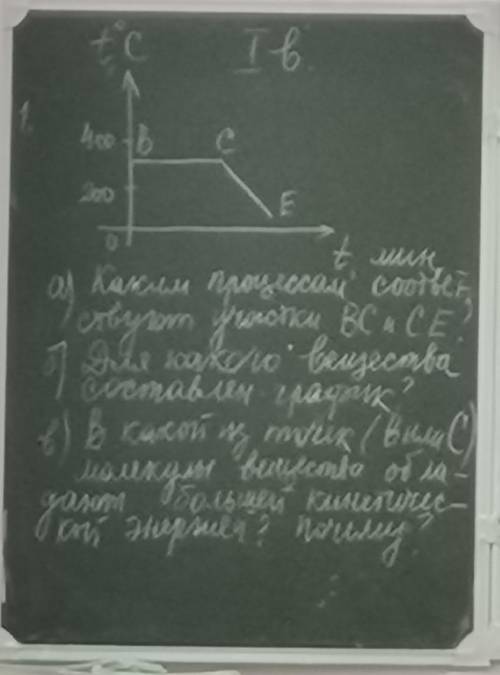 t°C I в.
1.
400 B C
200 E
0
t мин
а) Каким процессам соответ-
ствуют участки BC и CE?
б) Для какого вещества
составлен график?
в) В какой из точек (В или С)
молекулы вещества обла-
дают большей кинетичес-
кой энергией? Почему?